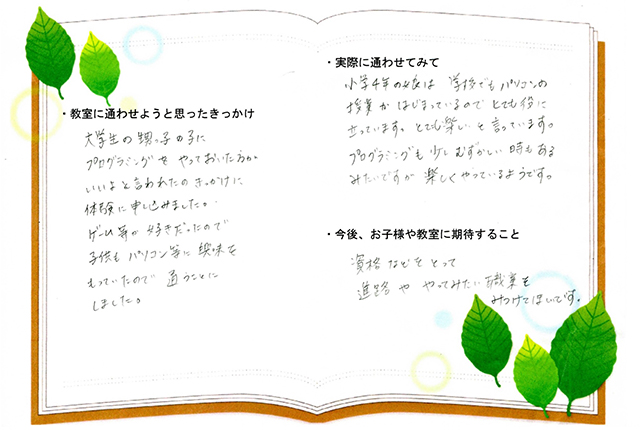 ・教室に通わせようと思ったきっかけ
大学生の甥っ子の子に
プログラミングをやっておいた方が
いいよと言われたのきっかけに
体験に申し込みました。
ゲーム等が好きだったので
子供もパソコン等に興味を
もっていたので 通うことに
しました。
・実際に通わせてみて
小学4年の女は 学校でもパソコンの
授業がはじまっているので とても役に
立っています。とても楽しいと言っています。
プログラミングも少しむずかしい時もある
みたいですが 楽しくやっているようです。
・今後、お子様や教室に期待すること
資格などをとって
進路や やってみたい職業を
みつけてほしいです。